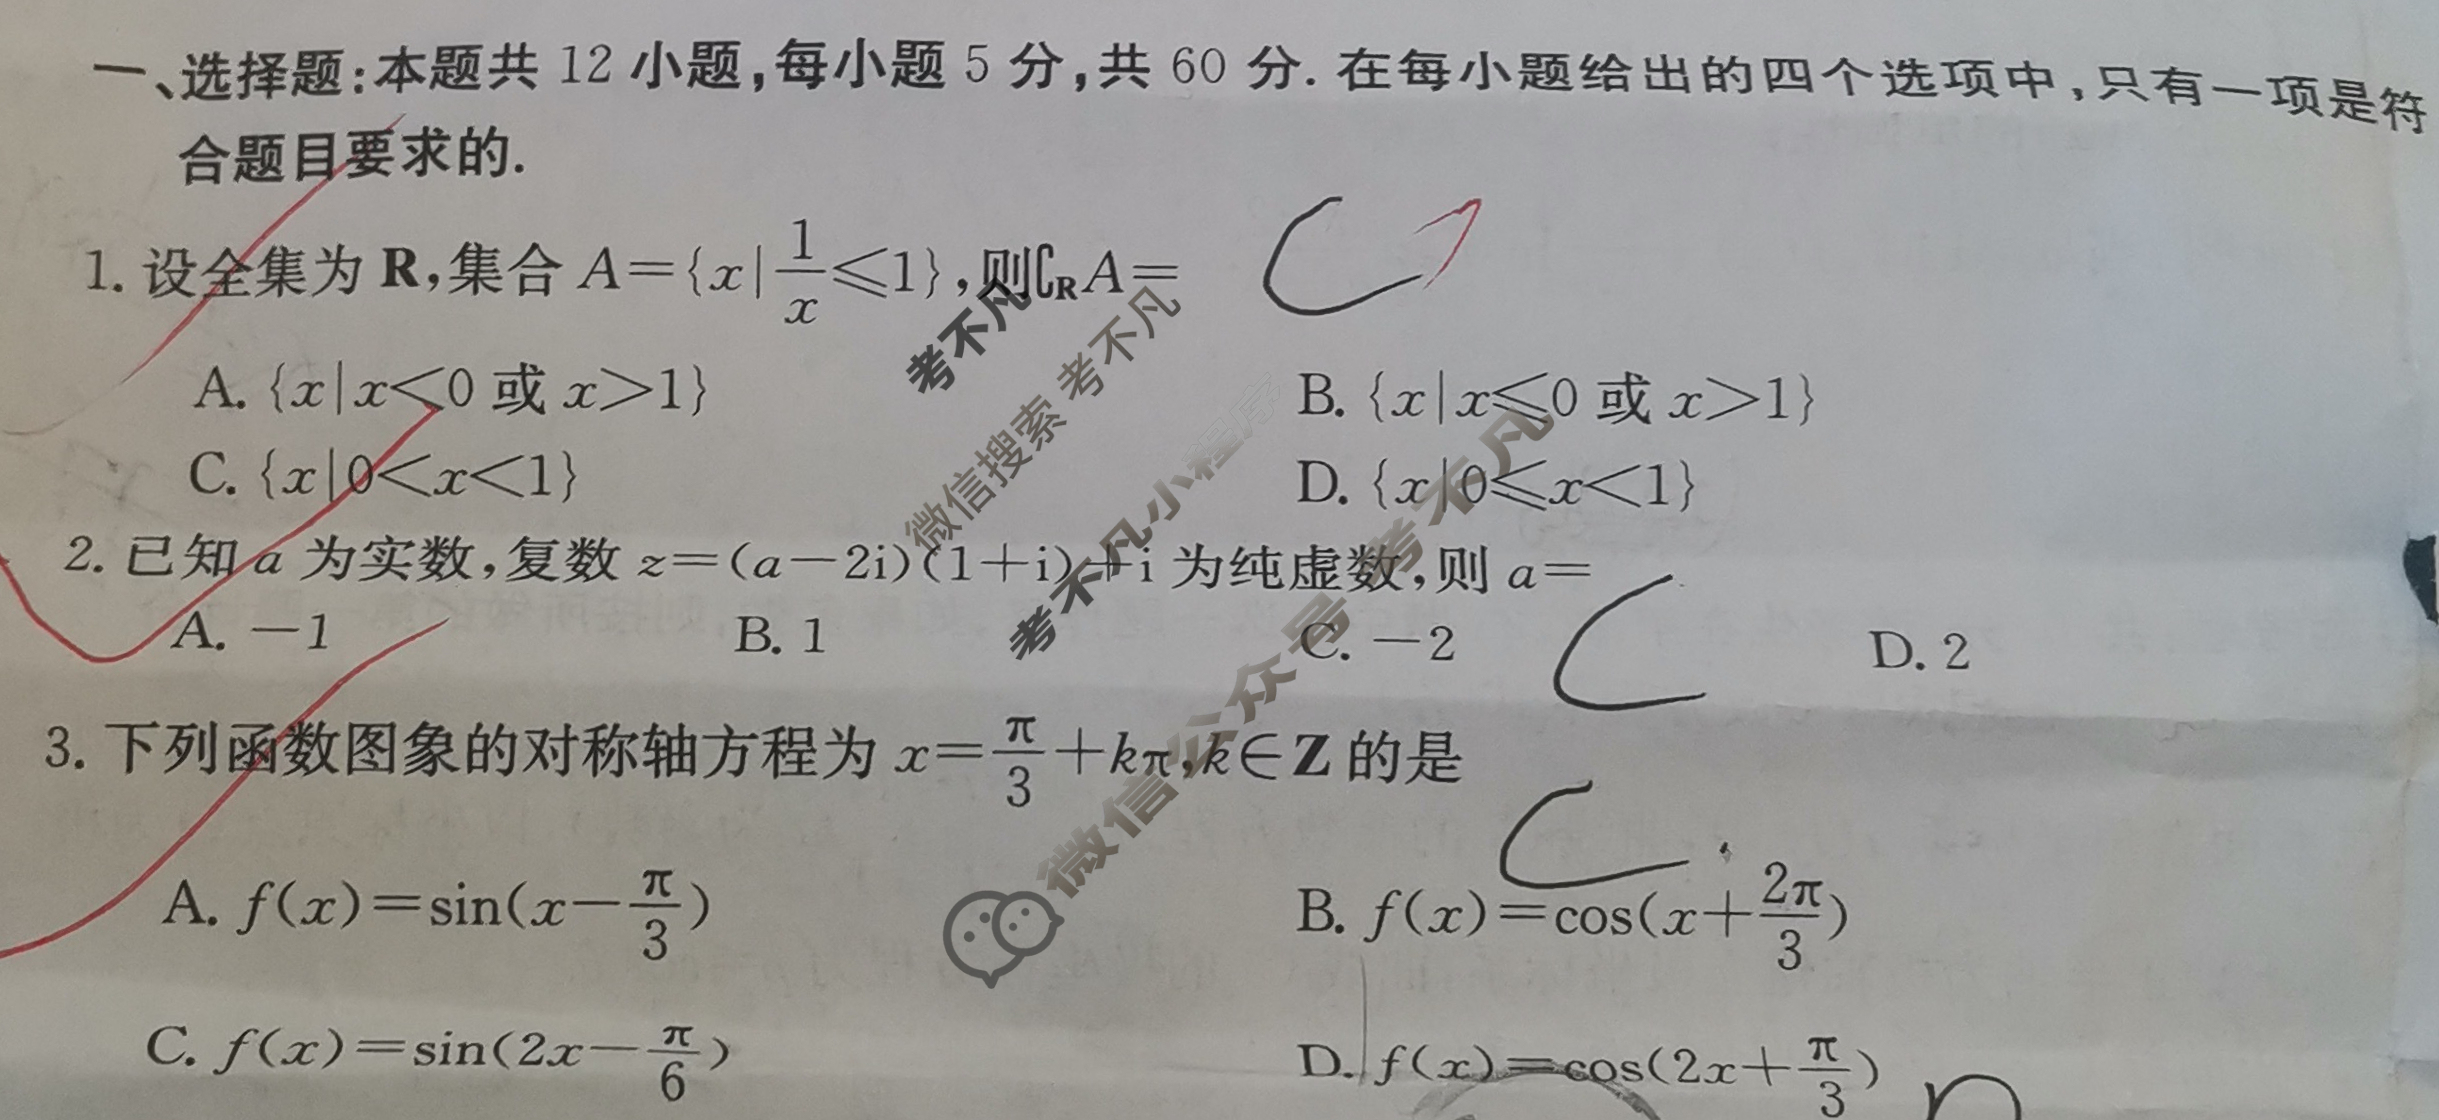 一、选择题:本题共 12 小题,每小题 5 分,共 60 分. 在每小题给出的四个选项中,只有一项是符
合题目要求的.
1. 设全集为 R,集合 A={x|1/x≤1},则∁_R A= C
A. {x|x<0 或 x>1} B. {x|x≤0 或 x>1}
C. {x|0<x<1} D. {x|0≤x<1}
2. 已知 a 为实数,复数 z=(a-2i)(1+i)+i 为纯虚数,则 a= C
A. -1 B. 1 C. -2 D. 2
3. 下列函数图象的对称轴方程为 x=π/3+kπ,k∈Z 的是 C
A. f(x)=sin(x-π/3) B. f(x)=cos(x+2π/3)
C. f(x)=sin(2x-π/6) D. f(x)=cos(2x+π/3)
考不凡
微信搜索 考不凡
考不凡小程序
微信公众号 考不凡